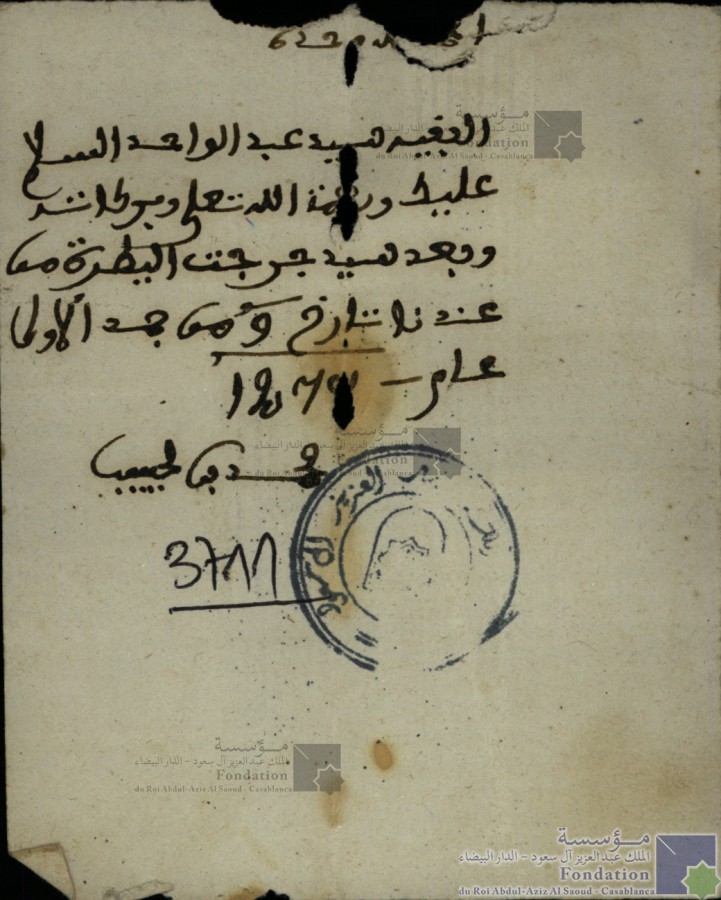 الحمد لله وحده
الفقيه سيد عبد الواحد السلام
عليك ورحمة الله تعلى وبركاته
وبعد سيد خرجت البطرة من
عندنا تارخ 9 من جمد الأولى
عام
محمد بن لحبيب
3711
العزيز
مؤسسة
الملك عبد العزيز آل سعود - الدار البيضاء
Fondation
du Roi Abdul-Aziz Al Saoud - Casablanca
مؤسسة
الملك عبد العزيز آل سعود - الدار البيضاء
Fondation
du Roi Abdul-Aziz Al Saoud - Casablanca
مؤسسة
الملك عبد العزيز آل سعود - الدار البيضاء
Fondation
du Roi Abdul-Aziz Al Saoud - Casablanca
مؤسسة
الملك عبد العزيز آل سعود - الدار البيضاء
Fondation
du Roi Abdul-Aziz Al Saoud - Casablanca